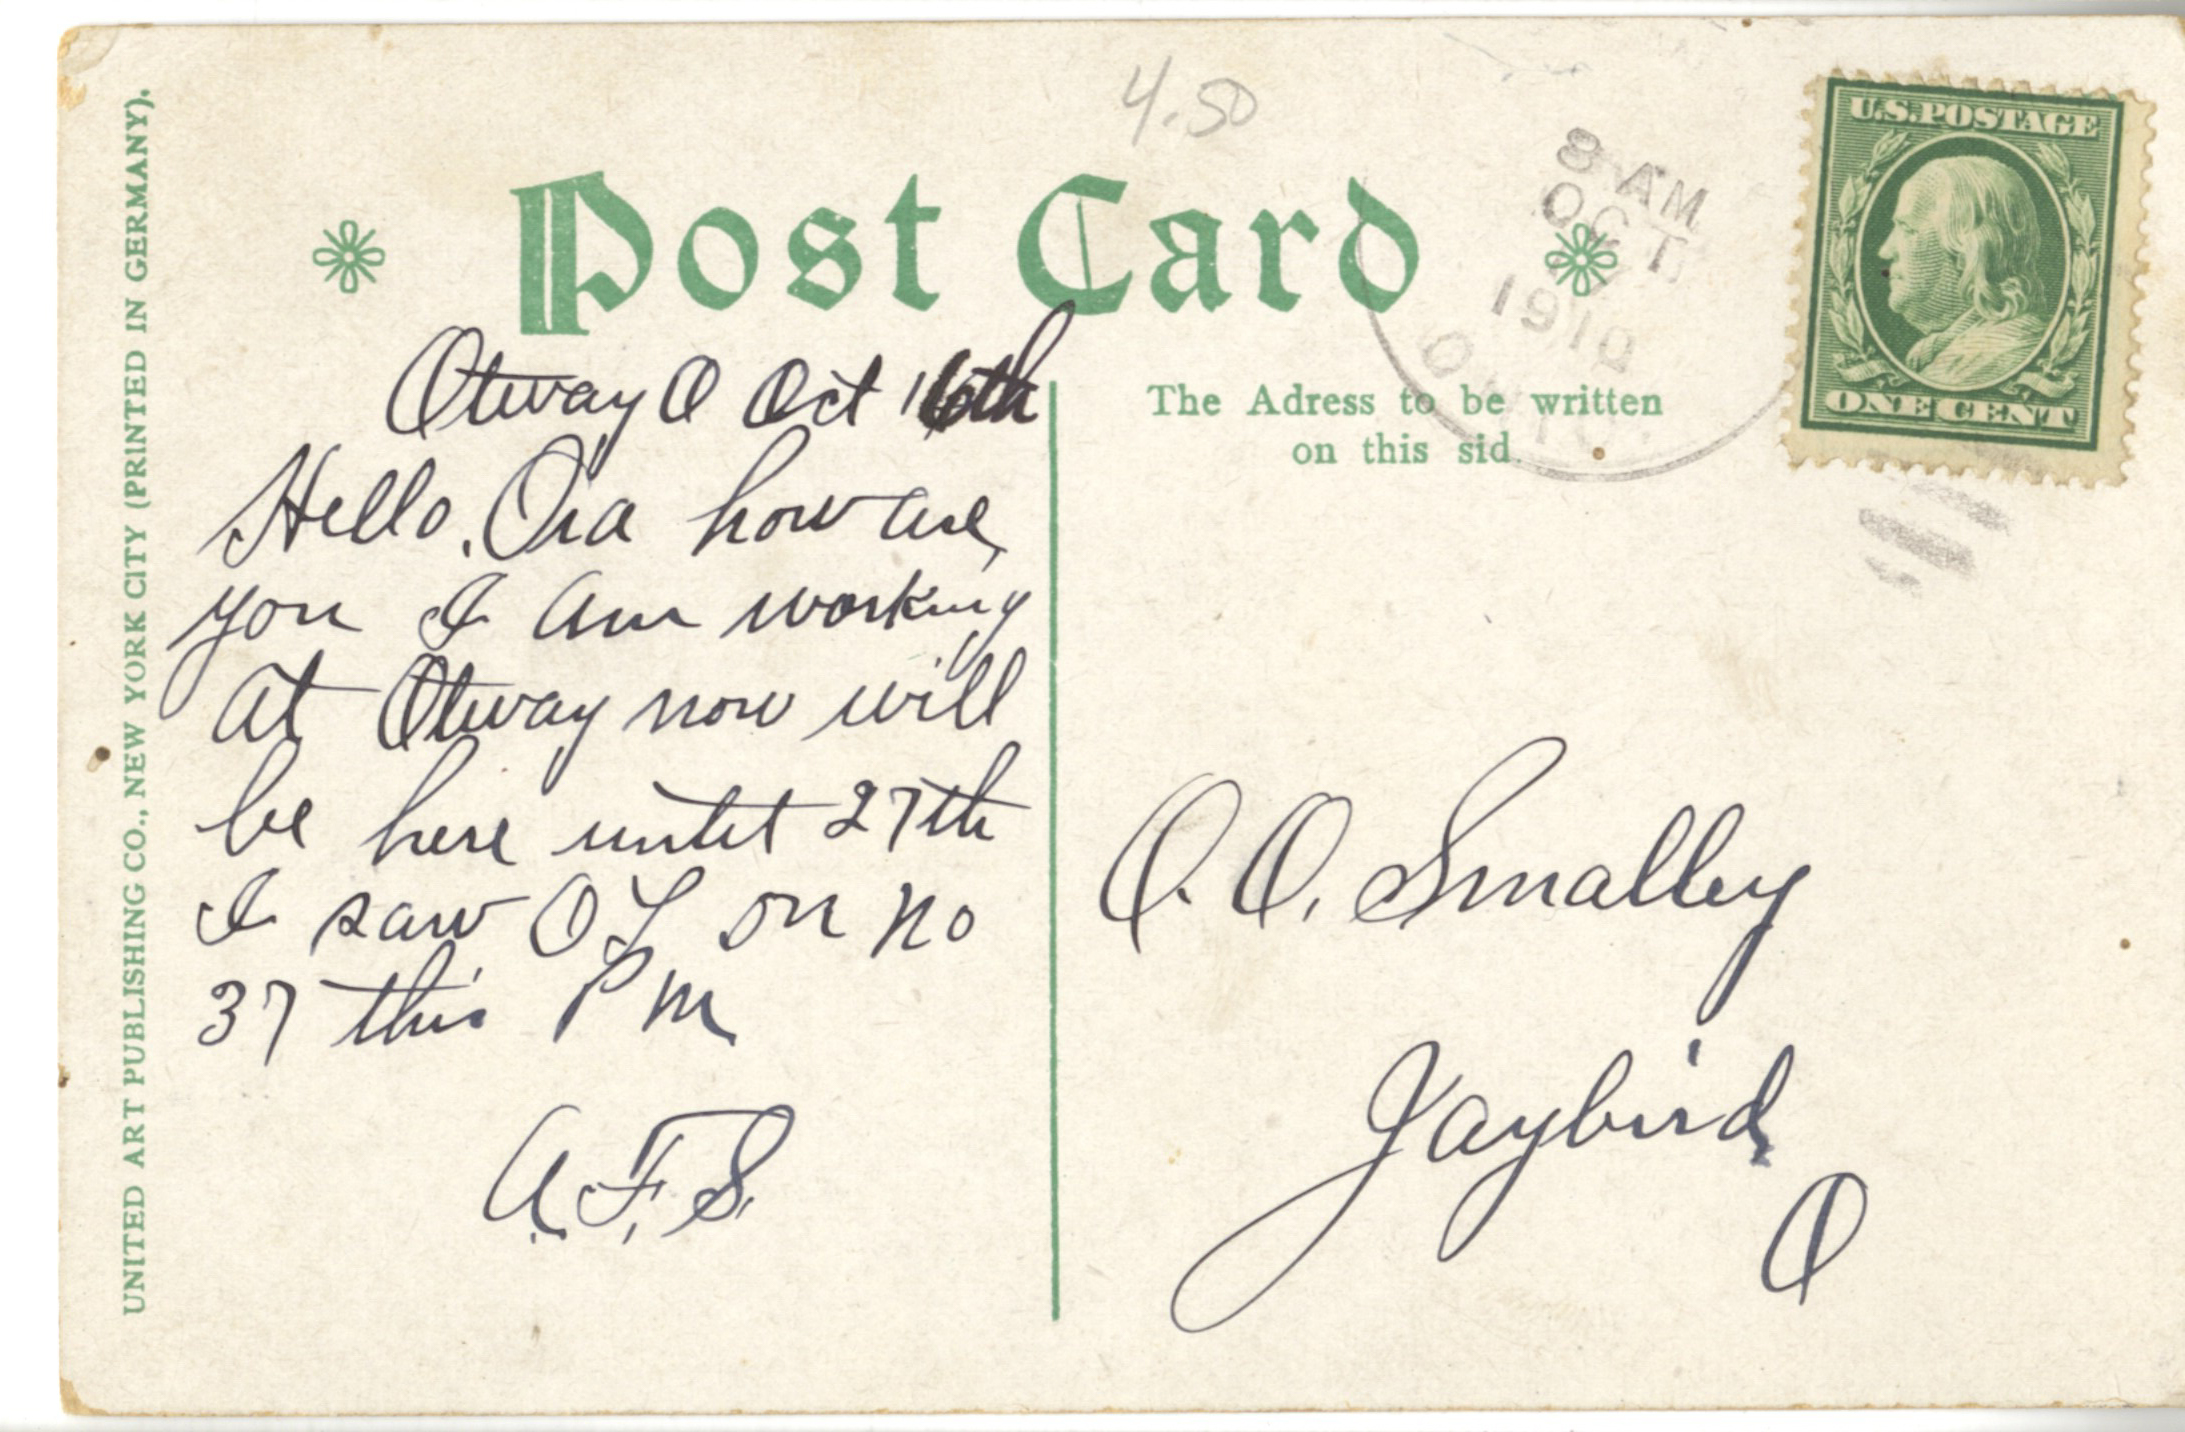 4.50
Post Card
8 AM
OCT
17
1910
O
IO.
U.S. POSTAGE
ONE CENT
UNITED ART PUBLISHING CO., NEW YORK CITY (PRINTED IN GERMANY).
Otway O Oct 16th
Hello, Ora how are
you I am working
at Otway now will
be here until 27th
I saw OL on No
37 this P M
A.F.S.
The Adress to be written
on this sid.
O. O. Smalley
Jaybird
O